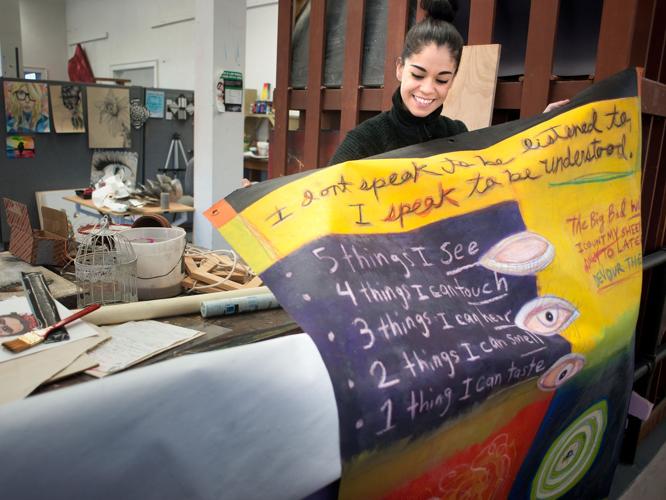 I dont speak to be listened to,
I speak to be understood.
5 things I see
4 things I can touch
3 things I can hear
2 things I can smell
1 thing I can taste
The Big Bad
I COUNT MY SHEEP
TO LATE
DEVOUR THE